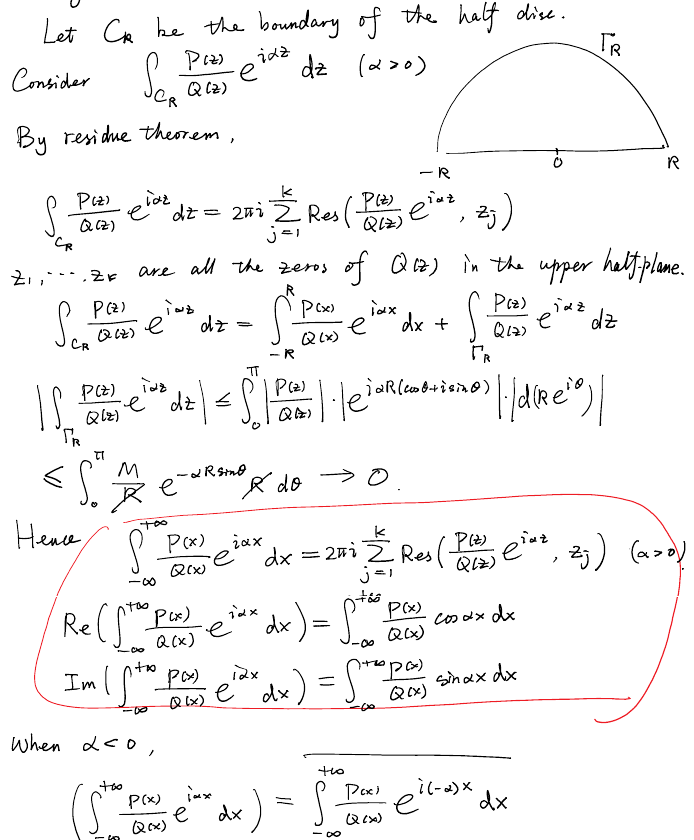 Let C_R be the boundary of the half disc.
Consider ∫_{C_R} P(z)/Q(z) e^{iαz} dz (α>0)
Γ_R
-R 0 R
By residue theorem,
∫_{C_R} P(z)/Q(z) e^{iαz} dz = 2πi ∑_{j=1}^{k} Res( P(z)/Q(z) e^{iαz}, z_j )
z_1, ..., z_k are all the zeros of Q(z) in the upper half-plane.
∫_{C_R} P(z)/Q(z) e^{iαz} dz = ∫_{-R}^{R} P(x)/Q(x) e^{iαx} dx + ∫_{Γ_R} P(z)/Q(z) e^{iαz} dz
| ∫_{Γ_R} P(z)/Q(z) e^{iαz} dz | ≤ ∫_0^π | P(z)/Q(z) | · | e^{iαR(cosθ+isinθ)} | · | d(Re^{iθ}) |
≤ ∫_0^π M/R e^{-αR sinθ} R dθ → 0.
Hence ∫_{-∞}^{+∞} P(x)/Q(x) e^{iαx} dx = 2πi ∑_{j=1}^{k} Res( P(z)/Q(z) e^{iαz}, z_j ) (α>0)
Re( ∫_{-∞}^{+∞} P(x)/Q(x) e^{iαx} dx ) = ∫_{-∞}^{+∞} P(x)/Q(x) cosαx dx
Im( ∫_{-∞}^{+∞} P(x)/Q(x) e^{iαx} dx ) = ∫_{-∞}^{+∞} P(x)/Q(x) sinαx dx
When α<0,
( ∫_{-∞}^{+∞} P(x)/Q(x) e^{iαx} dx ) = \overline{∫_{-∞}^{+∞} P(x)/Q(x) e^{i(-α)x} dx}